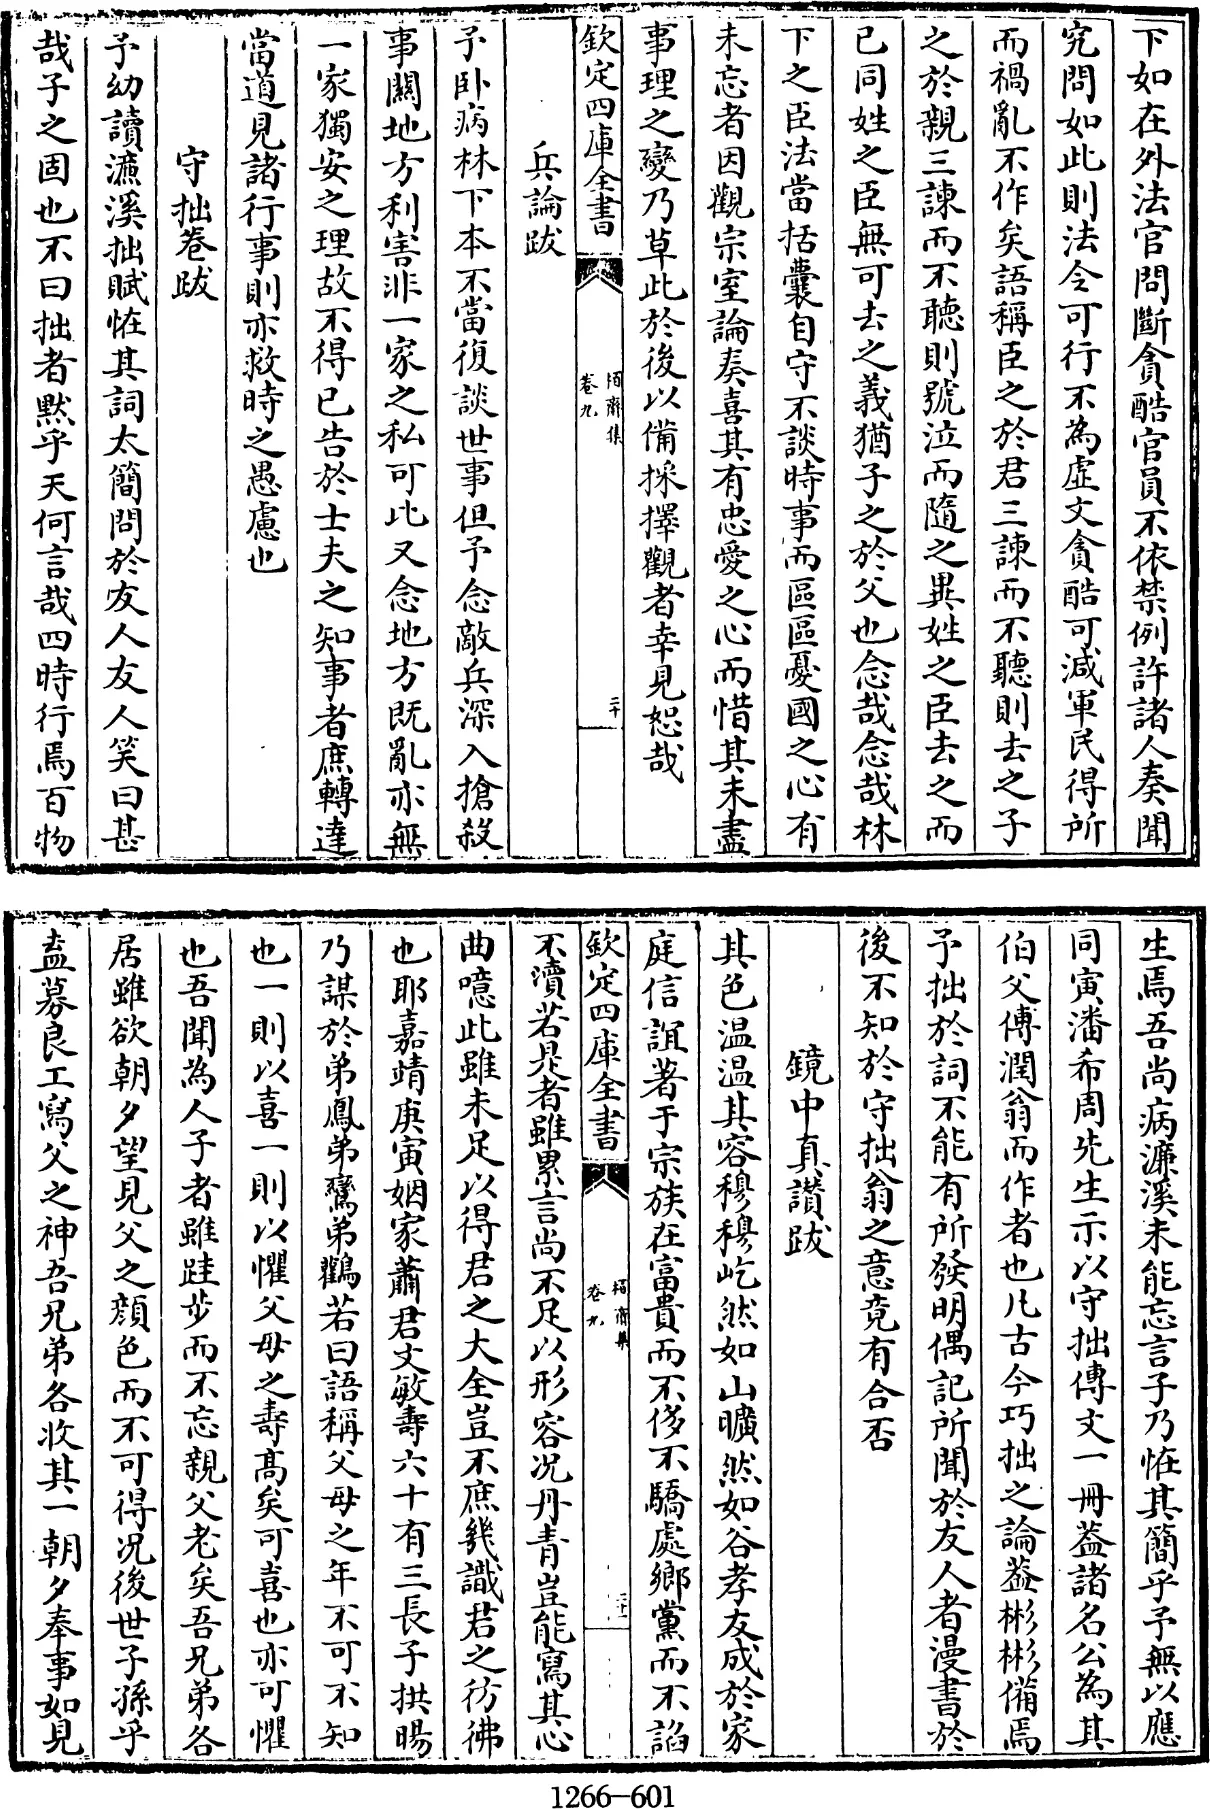 下如在外法官問斷貪酷官員不依禁例許諸人奏聞
究問如此則法令可行不為虛文貪酷可減軍民得所
而禍亂不作矣語稱臣之於君三諫而不聽則去之子
之於親三諫而不聽則號泣而隨之異姓之臣去之而
已同姓之臣無可去之義猶子之於父也念哉念哉林
下之臣法當括囊自守不談時事而區區憂國之心有
未忘者因觀宗室論奏喜其有忠愛之心而惜其未盡
事理之變乃草此於後以備採擇觀者幸見恕哉
欽定四庫全書
栢齋集
卷九
二十
兵論跋
予卧病林下本不當復談世事但予念敵兵深入搶殺
事關地方利害非一家之私可比又念地方既亂亦無
一家獨安之理故不得已告於士夫之知事者庶轉達
當道見諸行事則亦救時之愚慮也
守拙卷跋
予幼讀濂溪拙賦恠其詞太簡問於友人友人笑曰甚
哉子之固也不曰拙者黙乎天何言哉四時行焉百物
生焉吾尚病濂溪未能忘言子乃恠其簡乎予無以應
同寅潘希周先生示以守拙傳文一冊葢諸名公為其
伯父傅潤翁而作者也凡古今巧拙之論葢彬彬備焉
予拙於詞不能有所發明偶記所聞於友人者漫書於
後不知於守拙翁之意竟有合否
鏡中真讃跋
其色温温其容穆穆屹然如山曠然如谷孝友成於家
庭信誼著于宗族在富貴而不侈不驕處鄉黨而不諂
欽定四庫全書
栢齋集
卷九
二十一
不瀆若是者雖累言尚不足以形容况丹青豈能寫其心
曲噫此雖未足以得君之大全豈不庶幾識君之彷彿
也耶嘉靖庚寅姻家蕭君文敏壽六十有三長子拱暘
乃謀於弟鳳弟鸞弟鸛若曰語稱父母之年不可不知
也一則以喜一則以懼父母之壽高矣可喜也亦可懼
也吾聞為人子者雖跬步而不忘親父老矣吾兄弟各
居雖欲朝夕望見父之顔色而不可得况後世子孫乎
盍募良工寫父之神吾兄弟各收其一朝夕奉事如見
1266—601